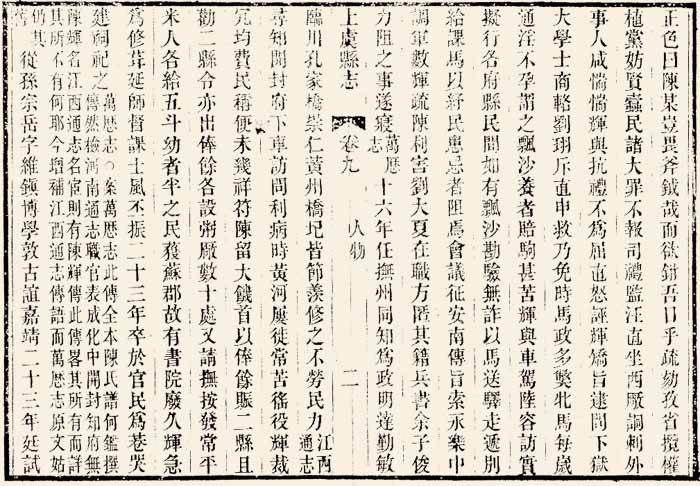 正色曰陳某豈畏斧鉞哉而欲鉗吾口乎疏劾孜省攬權
植黨妨賢蠹民諸大罪不報司禮監汪直坐西厰詗刺外
事人咸惴惴輝與抗禮不爲屈直怒誣輝矯旨逮問下獄
大學士商輅劉珝斥直申救乃免時馬政多獘牝馬每歲
通淫不孕謂之飄沙養者賠駒甚苦輝與車駕陸容訪實
擬行各府縣民間如有飄沙勘驗無詐以馬送驛走遞別
給課馬以紓民患忌者阻焉會議征安南傳旨索永樂中
調軍數輝疏陳利害劉大夏在職方匿其籍兵書余子俊
力阻之事遂寢萬厯志十六年任撫州同知爲政明達勤敏
上虞縣志 卷九 人物 二
臨川孔家橋崇仁黃州橋圮皆節羨修之不勞民力江西通志
尋知開封府下車訪問利病時黃河屢徙常苦徭役輝裁
冗均費民稱便未幾祥符陳留大饑首以俸餘賑二縣且
勸二縣令亦出俸餘各設粥厰數十處又請撫按發常平
米人各給五斗幼者半之民獲蘇郡故有書院廢久輝急
爲修葺延師督課士風丕振二十三年卒於官民爲巷哭
建祠祀之萬厯志○案萬厯志此傳全本陳氏譜何鑑撰
傳然檢河南通志職官表成化中開封知府無
陳輝名江西通志名宦則有陳輝傳此傳畧其所有而詳
其所不有何耶今增補江西通志傳語而萬厯志原文姑
仍其
舊從孫宗岳字維鎮博學敦古誼嘉靖二十三年廷試